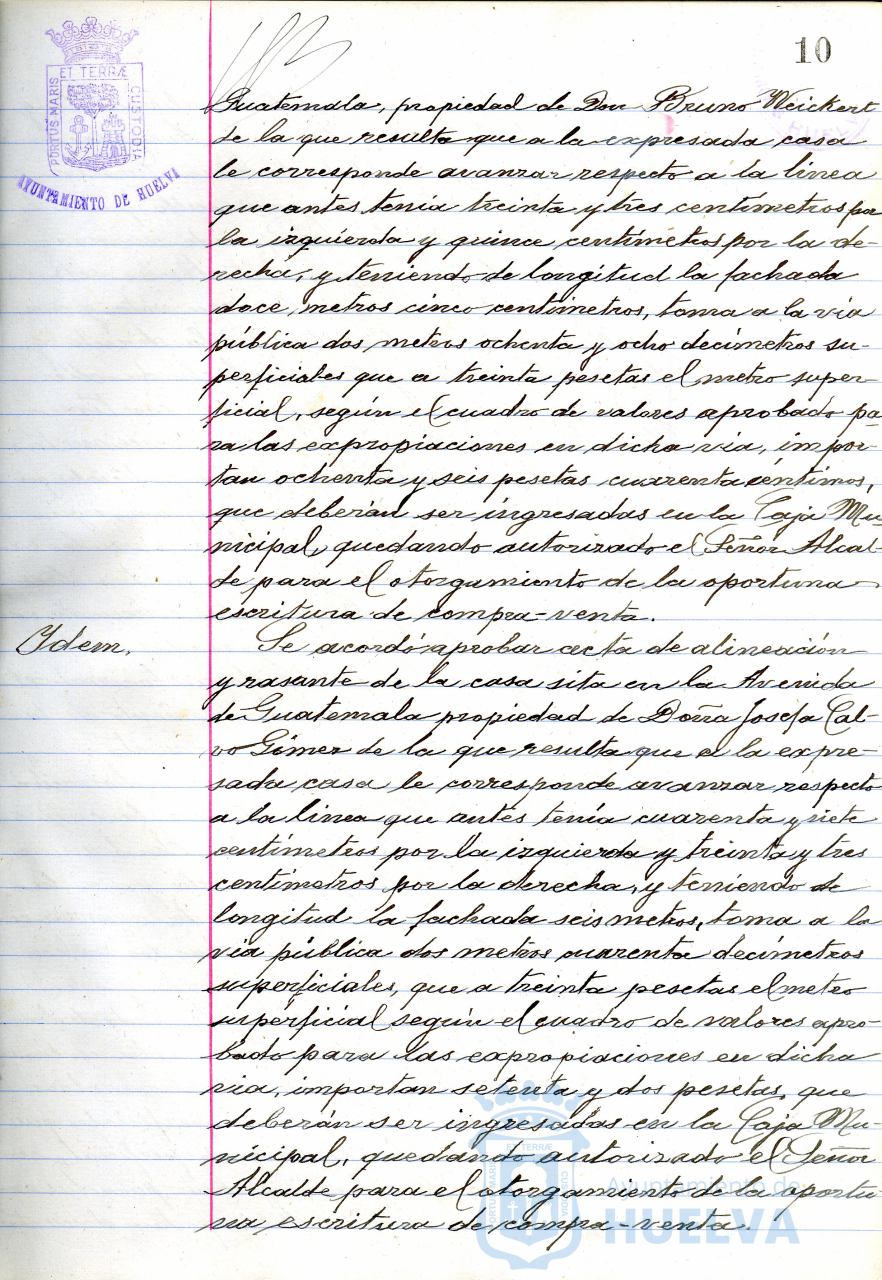 10
PORTUS MARIS ET TERRÆ CUSTODIA
AYUNTAMIENTO DE HUELVA
Guatemala, propiedad de Don Bruno Weickert
de la que resulta que a la expresada casa
le corresponde avanzar respecto a la linea
que antes tenía treinta y tres centímetros por
la izquierda y quince centímetros por la de-
recha, y teniendo de longitud la fachada
doce metros cinco centímetros, toma a la vía
pública dos metros ochenta y ocho decímetros su-
perficiales que a treinta pesetas el metro super-
ficial, según el cuadro de valores aprobado pa-
ra las expropiaciones en dicha via, impor-
tan ochenta y seis pesetas cuarenta céntimos,
que deberán ser ingresadas en la Caja Mu-
nicipal, quedando autorizado el Señor Alcal-
de para el otorgamiento de la oportuna
escritura de compra-venta.
Ydem.
Se acordó aprobar acta de alineación
y rasante de la casa sita en la Avenida
de Guatemala propiedad de Doña Josefa Cal-
vo Gómez de la que resulta que a la expre-
sada casa le corresponde avanzar respecto
a la linea que antes tenía cuarenta y siete
centímetros por la izquierda y treinta y tres
centímetros por la derecha, y teniendo de
longitud la fachada seis metros, toma a la
vía pública dos metros cuarenta decímetros
superficiales, que a treinta pesetas el metro
superficial según el cuadro de valores apro-
bado para las expropiaciones en dicha
via, importan setenta y dos pesetas, que
deberán ser ingresadas en la Caja Mu-
nicipal, quedando autorizado el Señor
Alcalde para el otorgamiento de la oportu-
na escritura de compra-venta.
PORTUS MARIS ET TERRÆ CUSTODIA
Ayuntamiento de
HUELVA